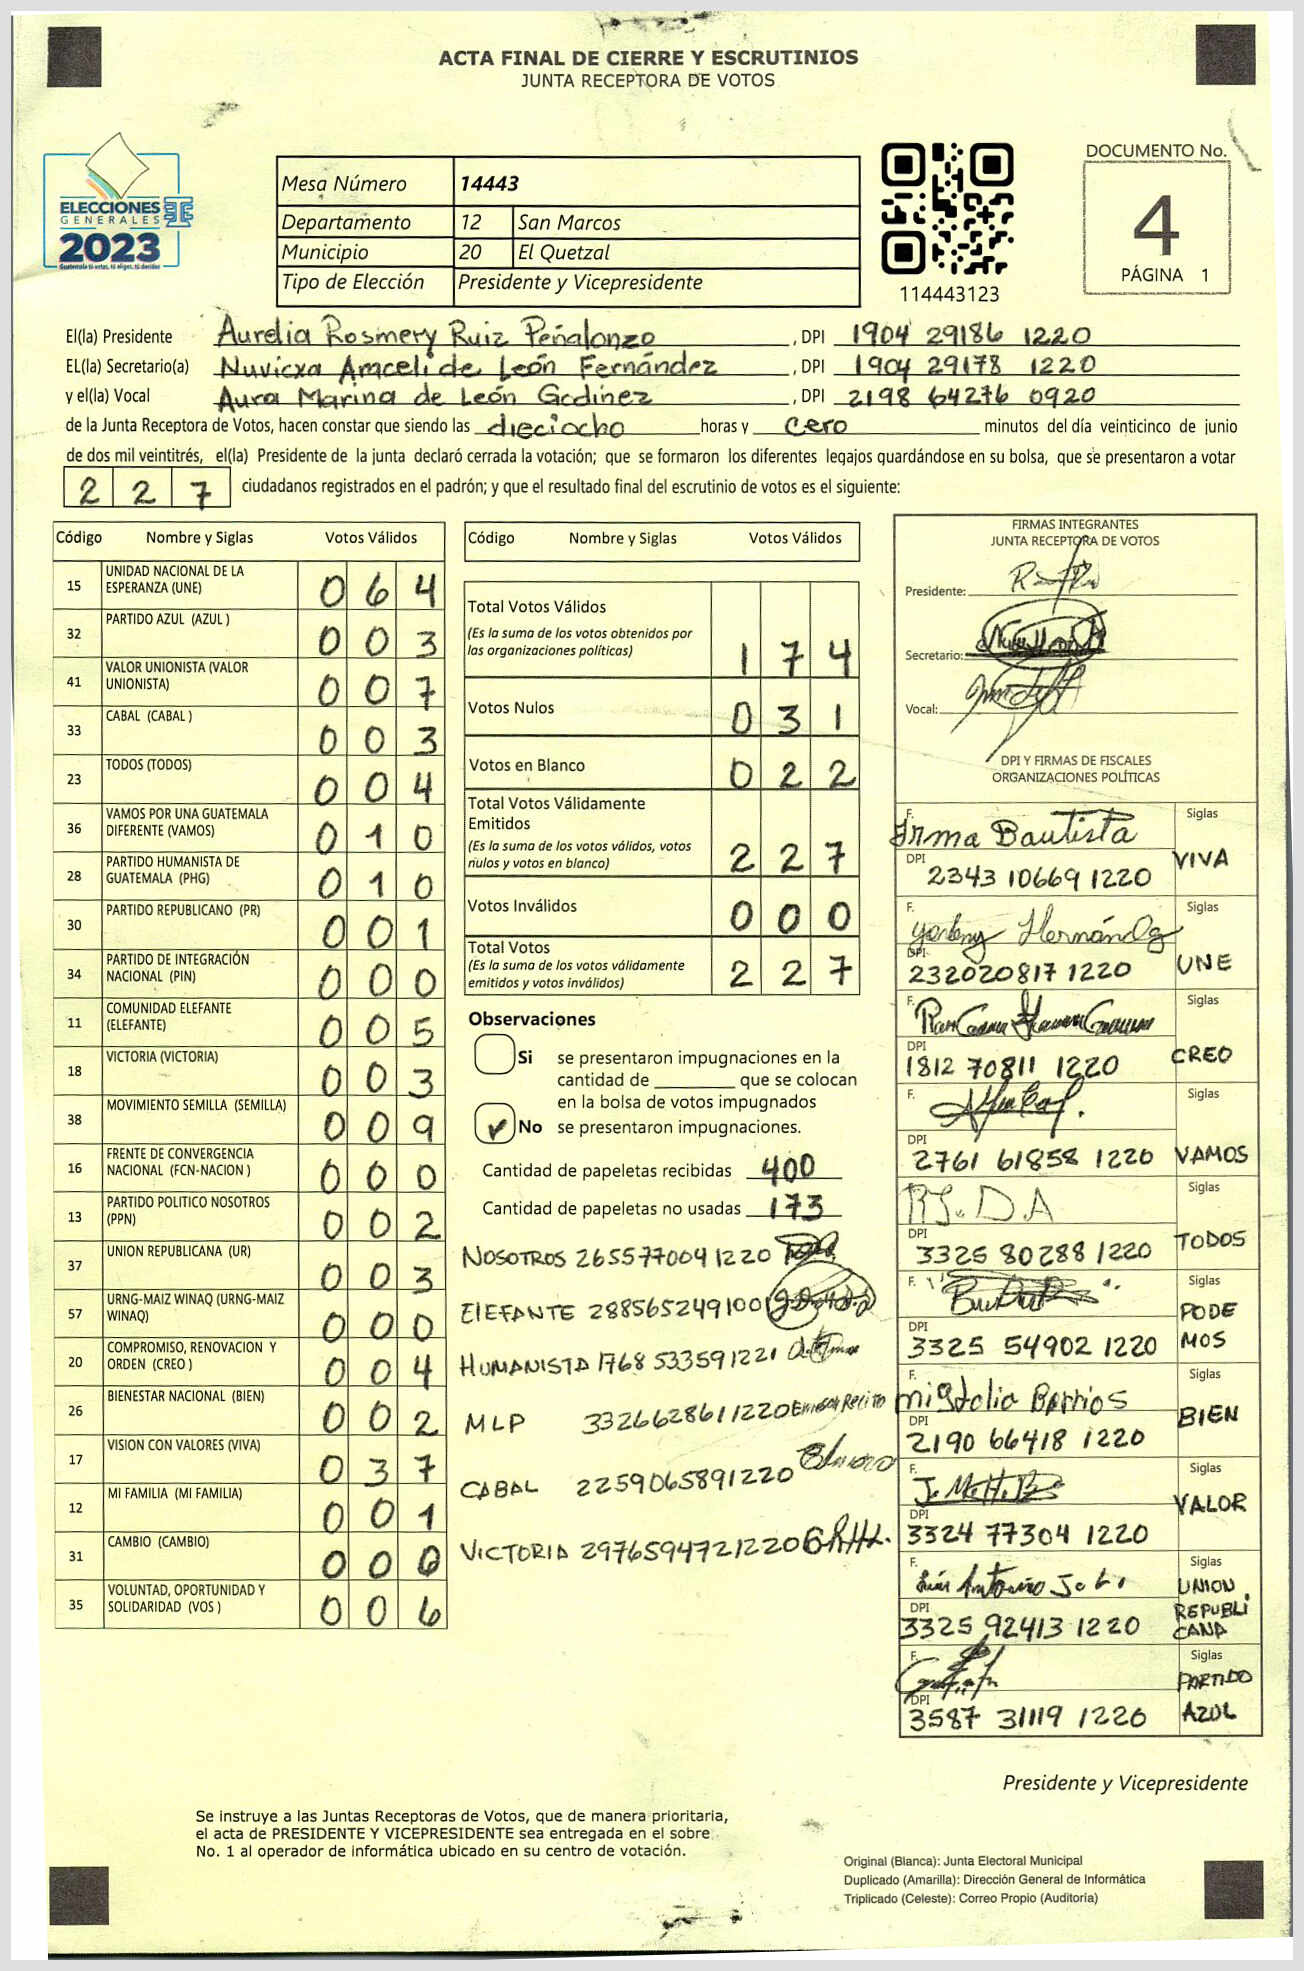 ACTA FINAL DE CIERRE Y ESCRUTINIOS
JUNTA RECEPTORA DE VOTOS
ELECCIONES
GENERALES
2023
Guatemala tú votas, tú eliges, tú decides
Mesa Número 14443
Departamento 12 San Marcos
Municipio 20 El Quetzal
Tipo de Elección Presidente y Vicepresidente
114443123
DOCUMENTO No.
4
PÁGINA 1
El(la) Presidente Aurelia Rosmery Ruiz Peñalonzo, DPI 1904 29186 1220
EL(la) Secretario(a) Nuvicxa Araceli de León Fernández, DPI 1904 29178 1220
y el(la) Vocal Aura Marina de León Godínez, DPI 2198 64276 0920
de la Junta Receptora de Votos, hacen constar que siendo las dieciocho horas y cero minutos del día veinticinco de junio
de dos mil veintitrés, el(la) Presidente de la junta declaró cerrada la votación; que se formaron los diferentes legajos guardándose en su bolsa, que se presentaron a votar
227 ciudadanos registrados en el padrón; y que el resultado final del escrutinio de votos es el siguiente:
Código Nombre y Siglas Votos Válidos
15 UNIDAD NACIONAL DE LA
ESPERANZA (UNE) 064
32 PARTIDO AZUL (AZUL ) 003
41 VALOR UNIONISTA (VALOR
UNIONISTA) 007
33 CABAL (CABAL ) 003
23 TODOS (TODOS) 004
36 VAMOS POR UNA GUATEMALA
DIFERENTE (VAMOS) 010
28 PARTIDO HUMANISTA DE
GUATEMALA (PHG) 010
30 PARTIDO REPUBLICANO (PR) 001
34 PARTIDO DE INTEGRACIÓN
NACIONAL (PIN) 000
11 COMUNIDAD ELEFANTE
(ELEFANTE) 005
18 VICTORIA (VICTORIA) 003
38 MOVIMIENTO SEMILLA (SEMILLA) 009
16 FRENTE DE CONVERGENCIA
NACIONAL (FCN-NACION ) 000
13 PARTIDO POLITICO NOSOTROS
(PPN) 002
37 UNION REPUBLICANA (UR) 003
57 URNG-MAIZ WINAQ (URNG-MAIZ
WINAQ) 000
20 COMPROMISO, RENOVACION Y
ORDEN (CREO ) 004
26 BIENESTAR NACIONAL (BIEN) 002
17 VISION CON VALORES (VIVA) 037
12 MI FAMILIA (MI FAMILIA) 001
31 CAMBIO (CAMBIO) 000
35 VOLUNTAD, OPORTUNIDAD Y
SOLIDARIDAD (VOS ) 006
Código Nombre y Siglas Votos Válidos
Total Votos Válidos
(Es la suma de los votos obtenidos por
las organizaciones políticas) 174
Votos Nulos 031
Votos en Blanco 022
Total Votos Válidamente
Emitidos
(Es la suma de los votos válidos, votos
nulos y votos en blanco) 227
Votos Inválidos 000
Total Votos
(Es la suma de los votos válidamente
emitidos y votos inválidos) 227
Observaciones
Si se presentaron impugnaciones en la
cantidad de ________ que se colocan
en la bolsa de votos impugnados
✓ No se presentaron impugnaciones.
Cantidad de papeletas recibidas 400
Cantidad de papeletas no usadas 173
NOSOTROS 2655770041220
ElEFANTE 2885652491001
HUMANISTA 1768 533591221
MLP 3326628611220
CABAL 2259065891220
VICTORIA 2976594721220
FIRMAS INTEGRANTES
JUNTA RECEPTORA DE VOTOS
Presidente:
Secretario:
Vocal:
DPI Y FIRMAS DE FISCALES
ORGANIZACIONES POLÍTICAS
F. Irma Bautista Siglas
DPI 2343 10669 1220 VIVA
F. Hernández Siglas
DPI 232020817 1220 UNE
F. Siglas
DPI 1812 70811 1220 CREO
F. Siglas
DPI 2761 61858 1220 VAMOS
Siglas
DPI 3325 80288 1220 TODOS
F. Siglas
DPI 3325 54902 1220 PODE
MOS
F. Migdalia Barrios Siglas
DPI 2190 66418 1220 BIEN
F. Siglas
DPI 3324 77304 1220 VALOR
F. Antonio Siglas
DPI 3325 92413 1220 UNION
REPUBLI
CANA
F. Siglas
DPI 3587 31119 1220 PARTIDO
AZUL
Presidente y Vicepresidente
Se instruye a las Juntas Receptoras de Votos, que de manera prioritaria,
el acta de PRESIDENTE Y VICEPRESIDENTE sea entregada en el sobre
No. 1 al operador de informática ubicado en su centro de votación.
Original (Blanca): Junta Electoral Municipal
Duplicado (Amarilla): Dirección General de Informática
Triplicado (Celeste): Correo Propio (Auditoría)